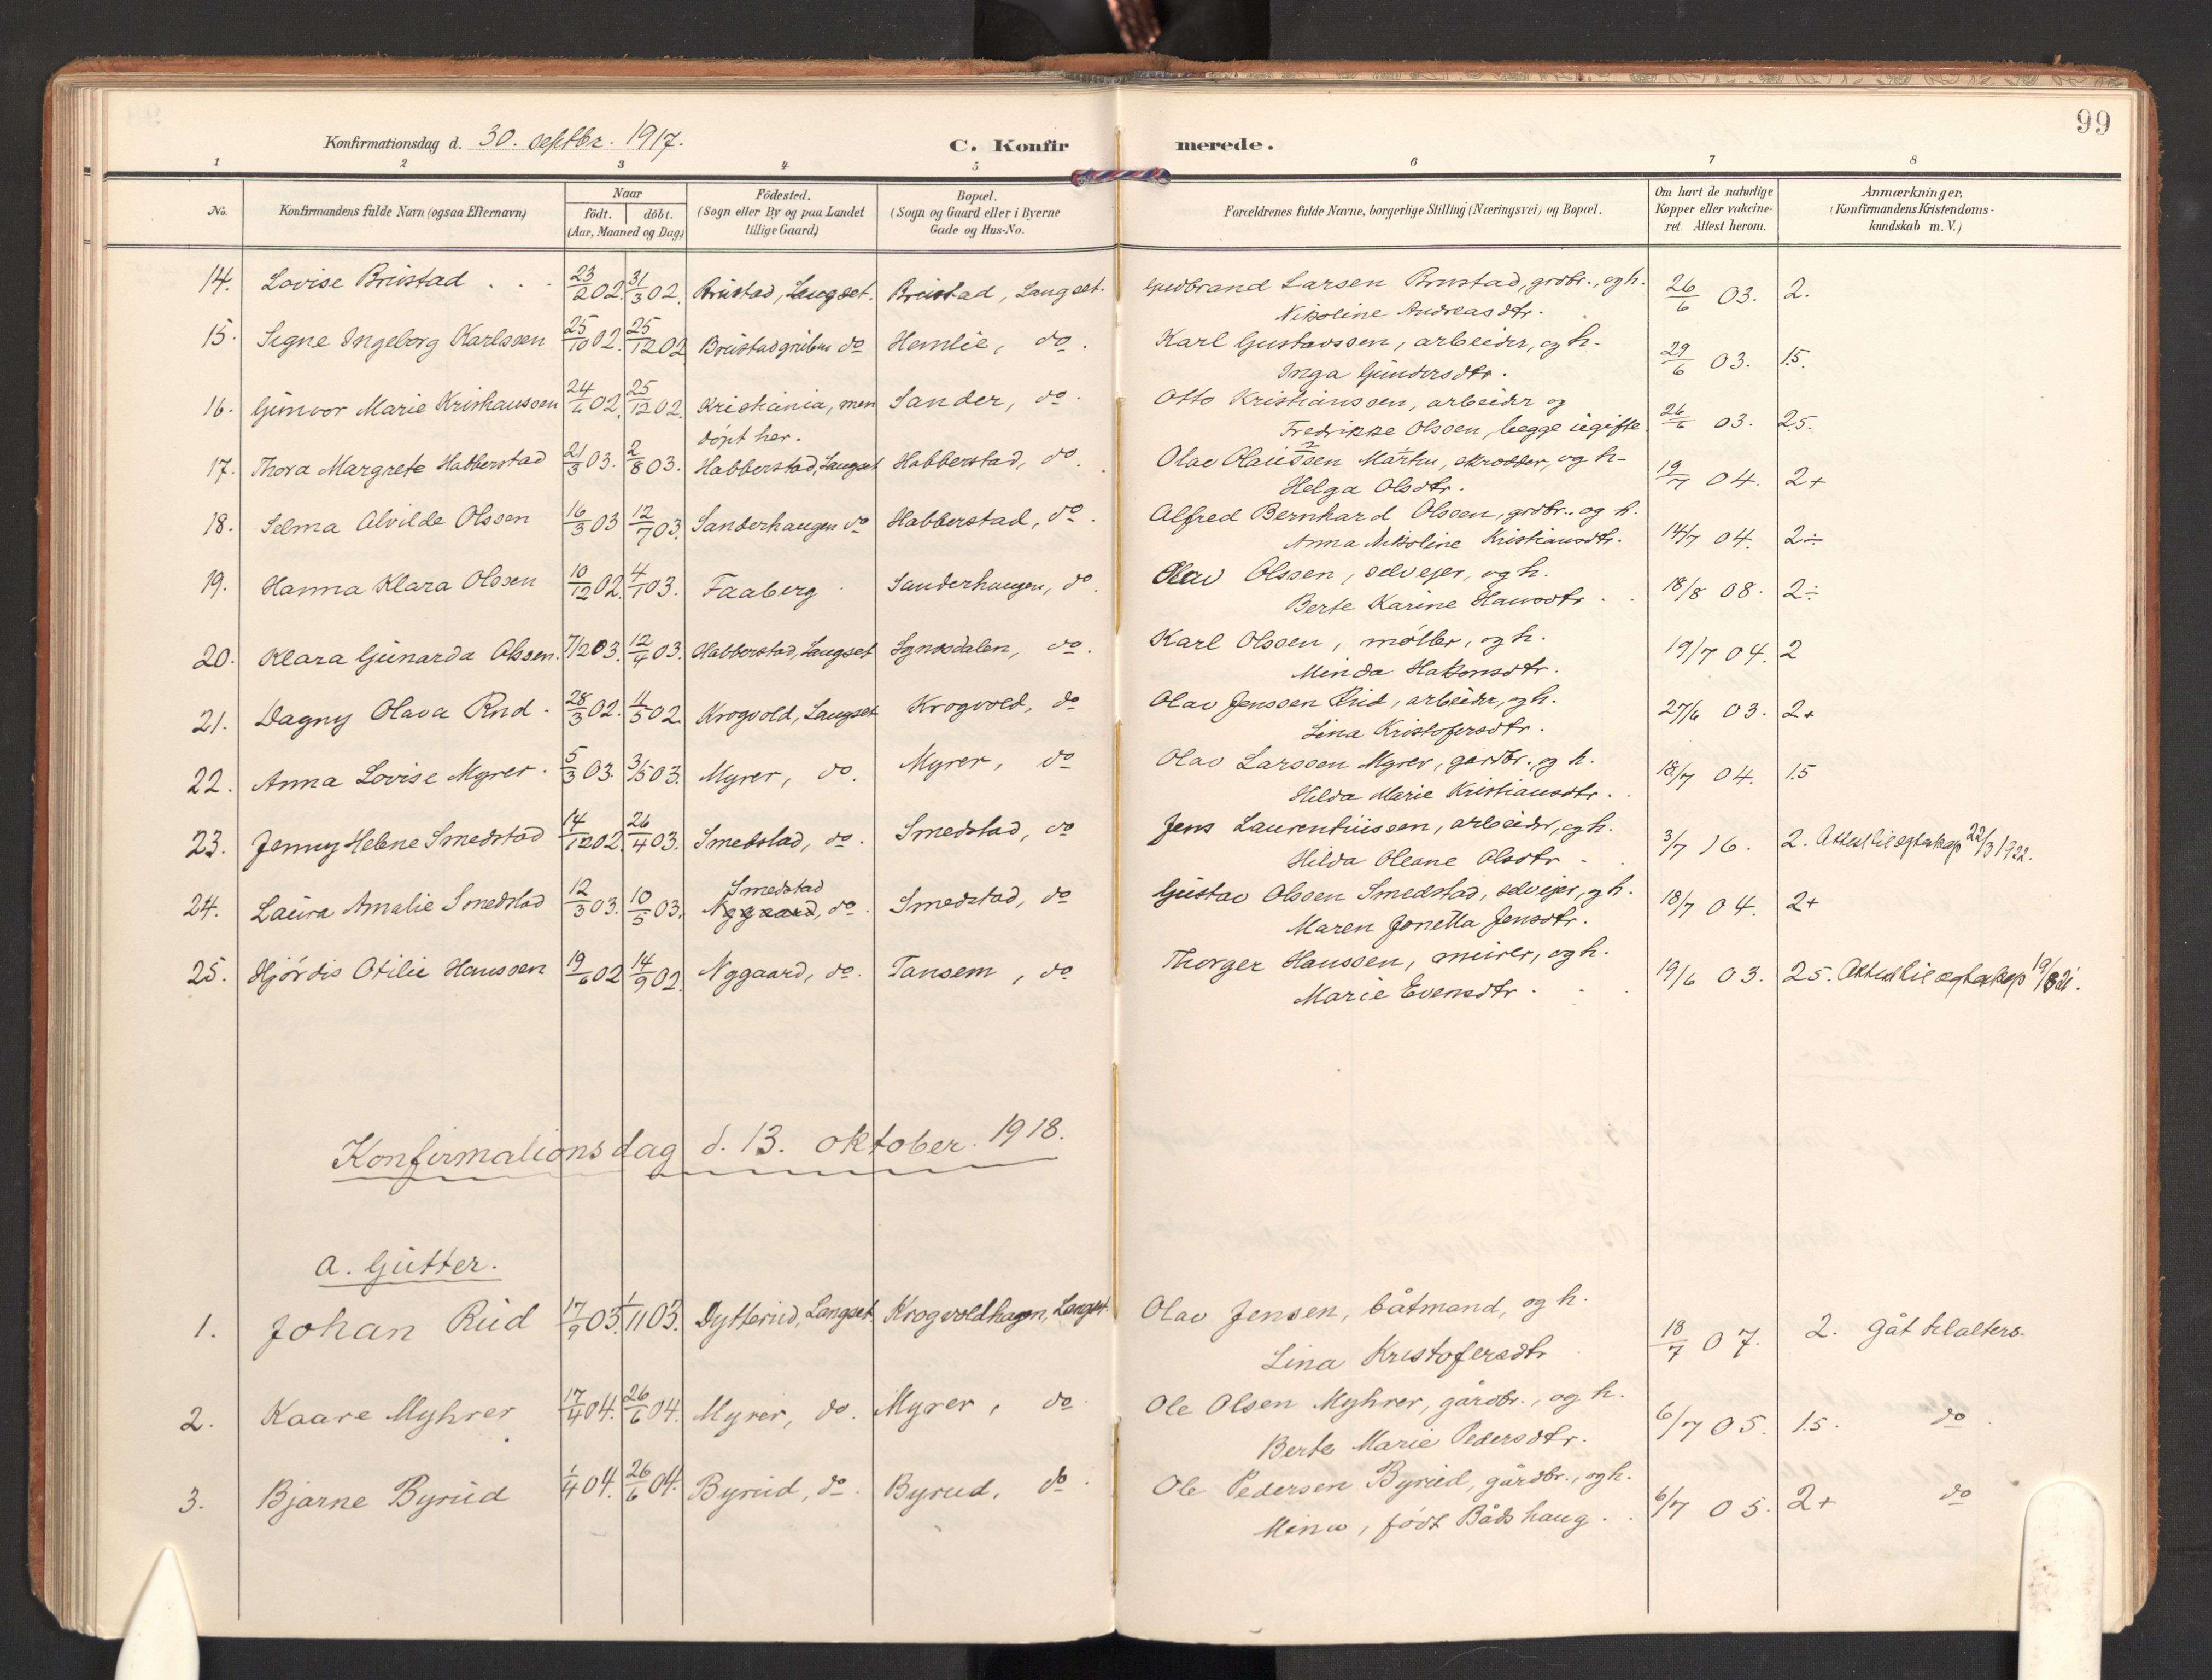 99
Konfirmationsdag d. 30. septbr. 1917.
C. Konfirmerede.
1 2 3 4 5 6 7 8
No. Konfirmandens fulde Navn (ogsaa Efternavn) Naar født. døbt. (Aar, Maaned og Dag) Fødested. (Sogn eller By og paa Landet tillige Gaard) Bopæl. (Sogn og Gaard eller i Byerne Gade og Hus-No. Forældrenes fulde Navne, borgerlige Stilling (Næringsvei) og Bopæl. Om havt de naturlige Kopper eller vakcineret. Attest herom. Anmærkninger. (Konfirmandens Kristendomskundskab m. V.)
14. Lovise Brustad . . . 23/2 02. 31/3 02. Brustad, Langset. Brustad, Langset. Gudbrand Larsen Brustad, grdbr., og h. 26/6 03. 2.
Nikoline Andreasdtr.
15. Signe Ingeborg Karlssen 25/10 02. 25/12 02 Brustadgriben do Hemlie, do. Karl Gustavssen, arbeider, og h. 29/6 03. 1.5.
Inga Gundersdtr.
16. Gunvor Marie Kristianssen 24/6 02. 25/12 02. Kristiania, men døpt her. Sander, do. Otto Kristianssen, arbeider og 26/6 03. 2.5.
Fredrikke Olssen, begge ugifte.
17. Thora Margrete Habberstad 21/3 03. 2/8 03. Habberstad, Langset Habberstad, do. Olav Olaussen Martin, skrædder, og h. 19/7 04. 2+
Helga Olsdtr.
18. Selma Alvilde Olssen 16/3 03 12/7 03. Sanderhaugen do Habberstad, do. Alfred Bernhard Olssen, grdbr. og h. 14/7 04. 2÷
Anna Nikoline Kristiansdtr.
19. Hanna Klara Olssen 10/12 02. 4/1 03. Faaberg Sanderhaugen, do. Olav Olssen, selveier, og h. 18/8 08. 2÷
Berte Karine Hansdtr.
20. Klara Gunarda Olssen. 7/12 03. 12/4 03. Habberstad, Langset Sgnosdalen, do. Karl Olssen, møller, og h. 19/7 04. 2
Minda Hakonsdtr.
21. Dagny Olava Rud. 28/3 02. 11/5 02. Krogvold, Langset Krogvold, do Olav Jenssen Rud, arbeider, og h. 27/6 03. 2+
Lina Kristofersdtr.
22. Anna Lovise Myrer. 5/3 03. 3/5 03. Myrer, do. Myrer, do Olav Larssen Myrer, gardbr. og h. 18/7 04. 1.5
Hilda Marie Kristiansdtr.
23. Jenny Helene Smedstad 14/12 02. 26/4 03. Smedstad, do. Smedstad, do Jens Laurentiussen, arbeider, og h. 3/7 16. 2. Attest til egteskap 22/3 1922.
Hilda Oleane Olsdtr.
24. Laura Amalie Smedstad 12/3 03. 10/5 03. Smedstad Nygaard, do. Smedstad, do Gustav Olssen Smedstad, selveier, og h. 18/7 04. 2+
Maren Jonetta Jensdtr.
25. Hjørdis Otilie Hanssen 19/6 02 14/9 02. Nygaard, do. Tansem, do Thorger Hanssen, murer, og h. 19/6 03. 2.5. Attest til egteskap
Marie Evensdtr.
Konfirmationsdag d. 13. oktober 1918.
a. Gutter.
1. Johan Rud 17/9 03. 1/11 03. Dytterud, Langset Krogvoldhagen, Langset. Olav Jensen, båtmand, og h. 18/7 07. 2. Gåt til alters.
Lina Kristofersdtr
2. Kaare Myhrer 17/4 04. 26/6 04. Myrer, do. Myrer, do. Ole Olsen Myhrer, gårdbr., og h. 6/7 05. 1.5. do.
Berte Marie Pedersdtr.
3. Bjarne Byrud 1/4 04. 26/6 04. Byrud, do. Byrud, do. Ole Pedersen Byrud, gårdbr., og h. 6/7 05. 2+ do
Mina, født Bådshaug.